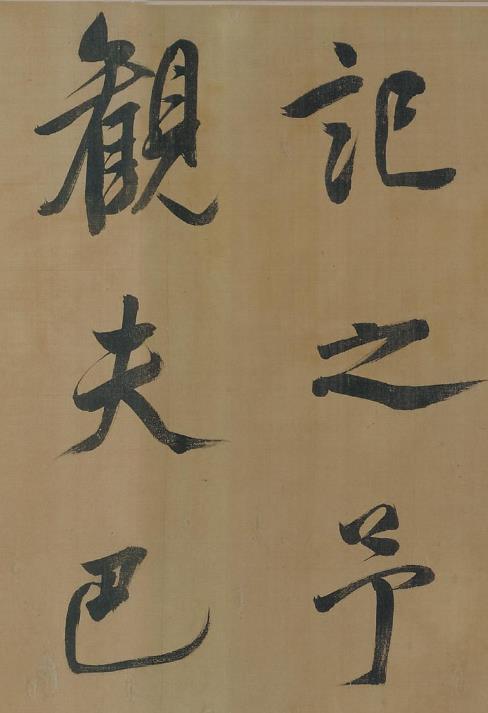 記之予
觀夫巴